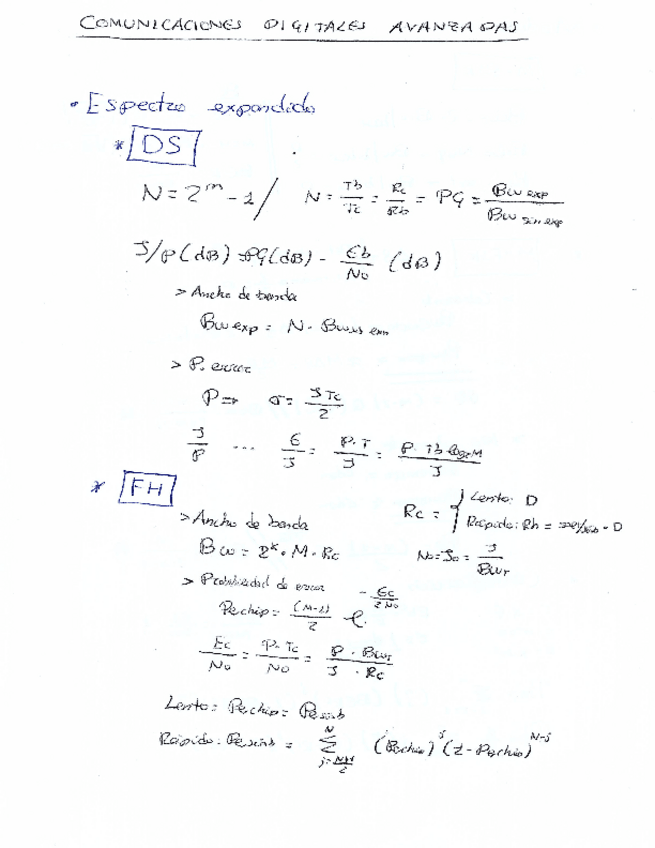 COMUNICACIONES DIGITALES AVANZADAS
• Espectro expandido
* DS
N = 2^m - 1 / N = Tb/Tc = Rc/Rb = PG = Bw exp/Bw sin exp
J/P (dB) = PG(dB) - Eb/No (dB)
> Ancho de banda
Bw exp = N · Bw
> P. error
P => σ = J Tc/2
J/P ... E/J = P·T/J = P·Tb log2M/J
* FH
> Ancho de banda
Rc = { Lento: D
Rápido: Rh = · D
Bw = 2^k · M · Rc
No = Jo = J/BwT
> Probabilidad de error
Pechip = (M-1)/2 e^(-Ec/2No)
Ec/No = P·Tc/No = P · BwT/J · Rc
Lento: Pechip = Pesimb
Rápido: Pesimb = Σ_{j=(N+1)/2}^{N} (Pechip)^j (1 - Pechip)^{N-j}